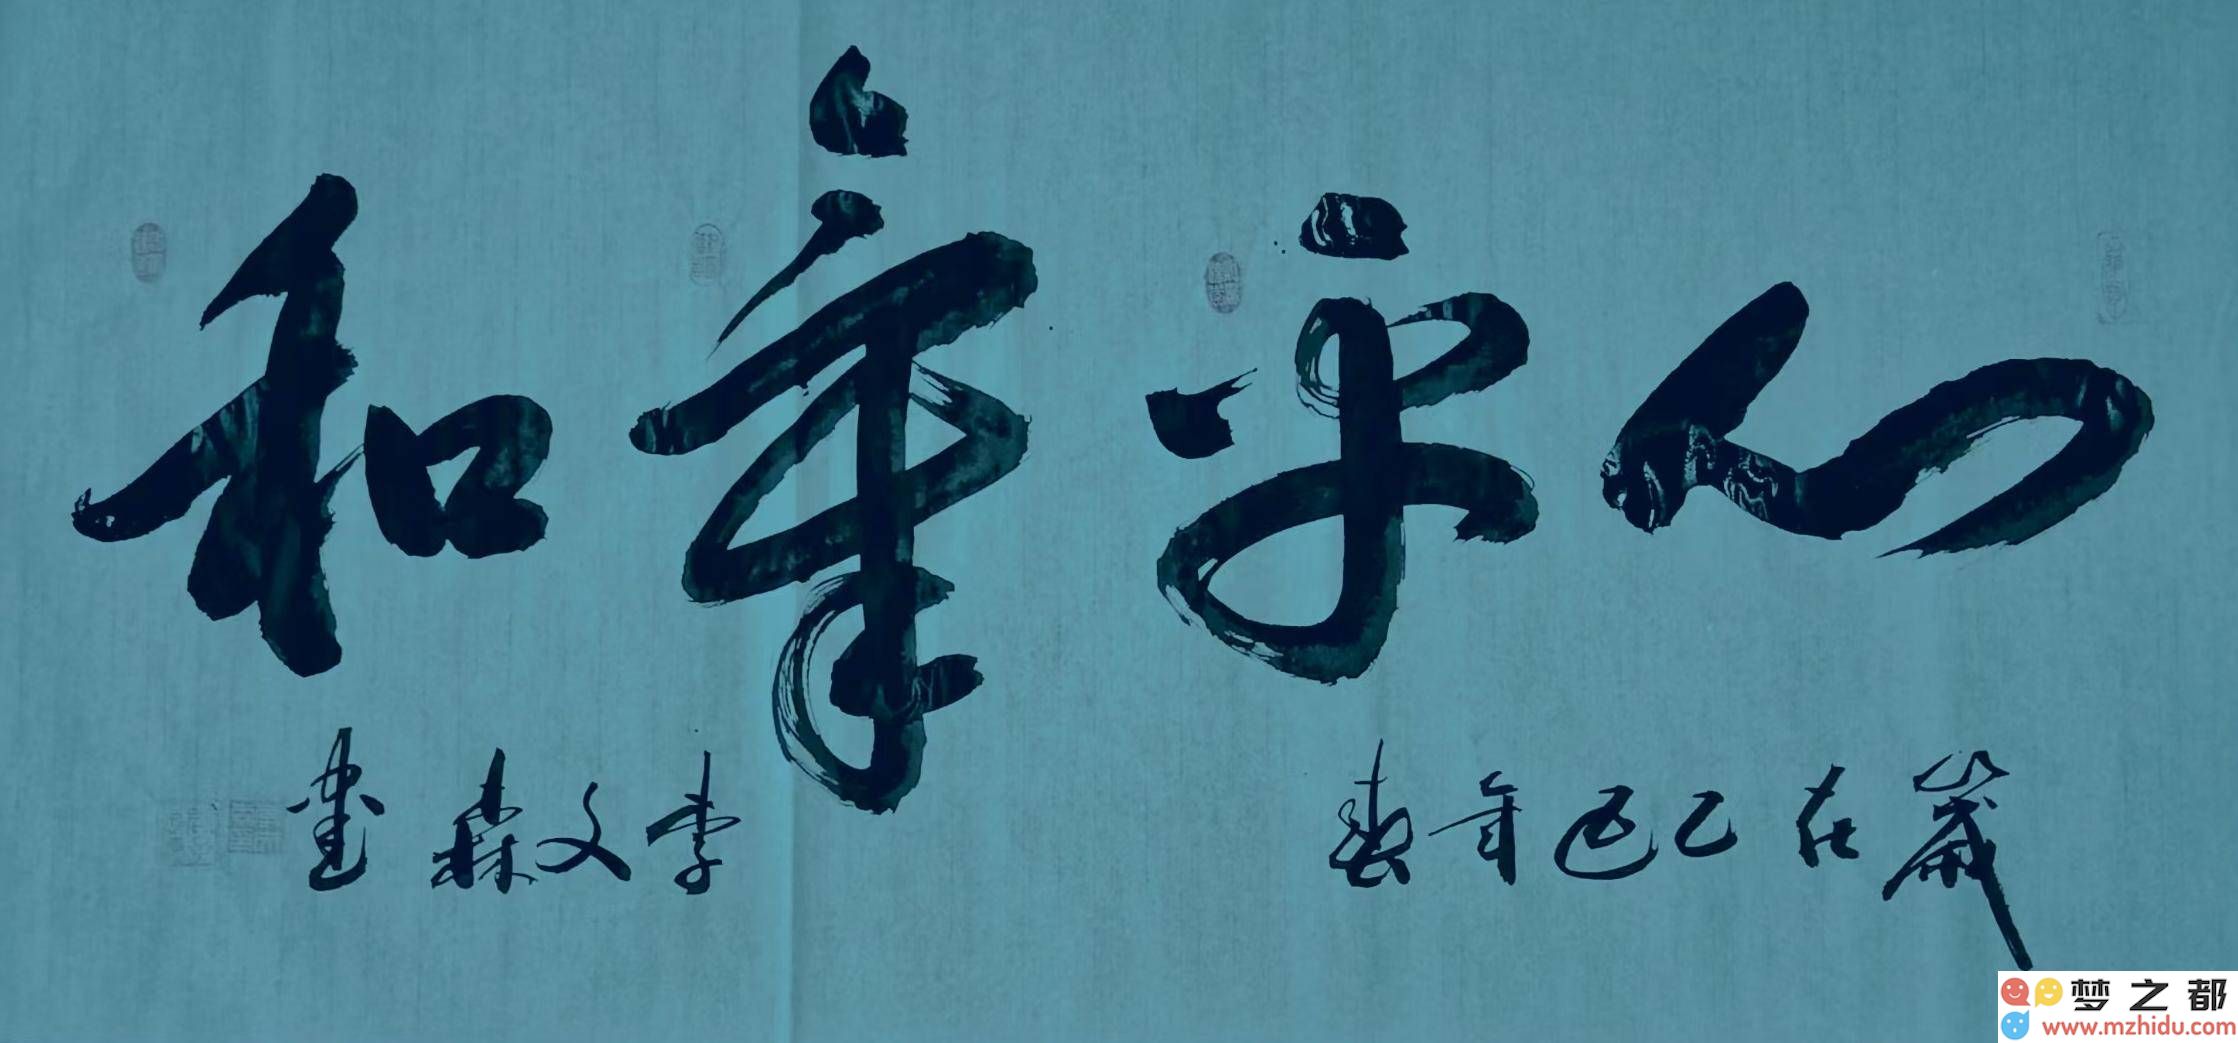 心平气和
岁在乙巳年春
李文森书
梦之都
www.mzhidu.com